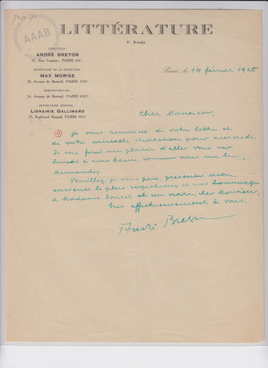 AAAB
LITTÉRATURE
DIRECTEUR
ANDRÉ BRETON
42, Rue Fontaine, PARIS (IXe)
SECRÉTAIRE DE LA RÉDACTION
MAX MORISE
ADMINISTRATION
DÉPOSITAIRE GÉNÉRAL
LIBRAIRIE GALLIMARD
15, Boulevard Raspail, PARIS
Paris, le 14 février 1925
Cher Monsieur,
je vous remercie de votre lettre et
de votre aimable invitation pour mercredi.
Je me ferai un plaisir d'aller vous voir
à une heure comme vous me le
demandez.
Veuillez, je vous prie, présenter mon
souvenir le plus respectueux et mes hommages
à Madame et me croire, cher Monsieur,
très affectueusement à vous.
André Breton